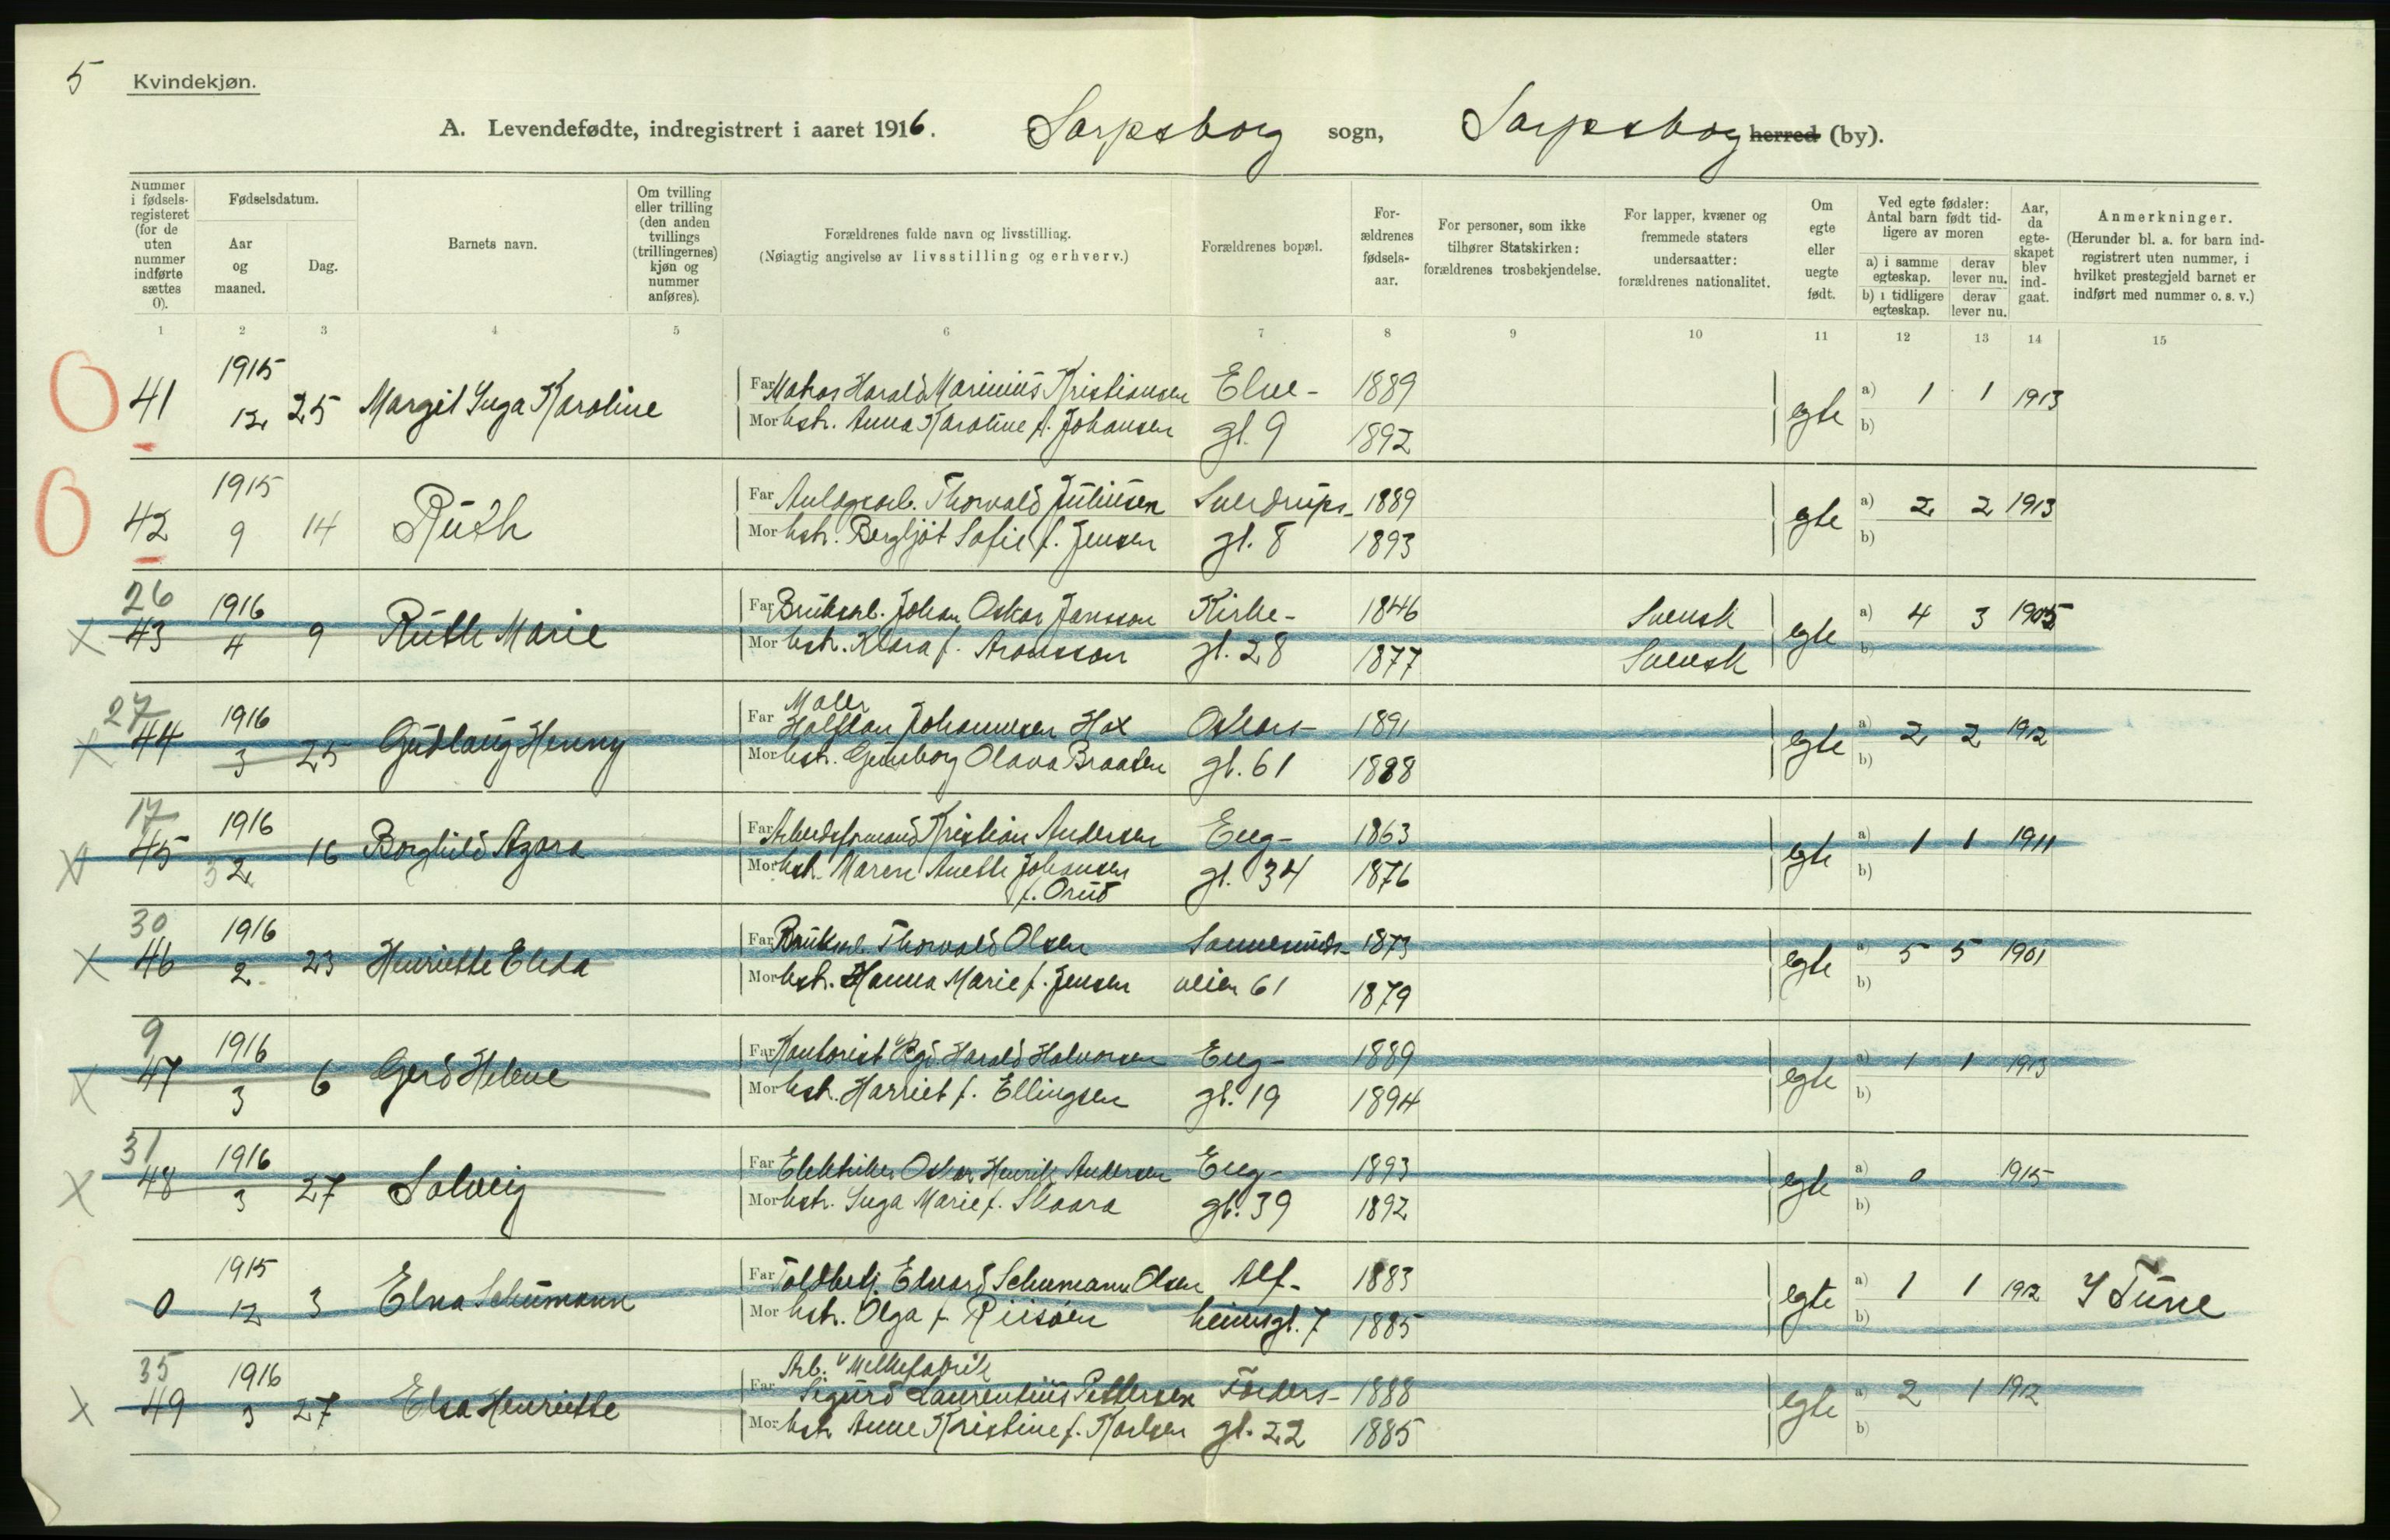 5 Kvindekjøn.
A. Levendefødte, indregistrert i aaret 1916. Sarpsborg sogn, Sarpsborg herred (by).
Nummer i fødsels-registeret (for de uten nummer indførte sættes 0).
Fødselsdatum.
Aar og maaned.
Dag.
Barnets navn.
Om tvilling eller trilling (den anden tvillings (trillingernes) kjøn og nummer anføres).
Forældrenes fulde navn og livsstilling.
(Nøiagtig angivelse av livsstilling og erhverv.)
Forældrenes bopæl.
For-ældrenes fødsels-aar.
For personer, som ikke tilhører Statskirken: forældrenes trosbekjendelse.
For lapper, kvæner og fremmede staters undersaatter: forældrenes nationalitet.
Om egte eller uegte født.
Ved egte fødsler: Antal barn født tid-ligere av moren
a) i samme egteskap. derav lever nu.
b) i tidligere egteskap. derav lever nu.
Aar, da egte-skapet blev ind-gaat.
Anmerkninger.
(Herunder bl. a. for barn ind-registrert uten nummer, i hvilket prestegjeld barnet er indført med nummer o. s. v.)
1 2 3 4 5 6 7 8 9 10 11 12 13 14 15
0 41 1915 12 25 Margit Inga Karoline
Far Matros Harald Marinius Kristiansen Elve- 1889 egte a) 1 1 1913
Mor hstr. Anna Karoline f. Johansen gt. 9 1892 b)
0 42 1915 9 14 Ruth
Far Anlegsarb. Thorvald Juliusen Sverdrups- 1889 egte a) 2 2 1913
Mor hstr. Bergljot Sofie f. Jensen gt. 8 1893 b)
26
X 43 1916 4 9 Ruth Marie
Far Bruksarb. Johan Oskar Jansson Kirke- 1846 Svensk egte a) 4 3 1905
Mor hstr. Klara f. Aronsson gt. 28 1877 Svensk b)
27
X 44 1916 3 25 Gudlaug Henny
Maler
Far Halfdan Johannesen Hox Oskars- 1891 egte a) 2 2 1912
Mor hstr. Gunborg Olava Braaten gt. 61 1888 b)
17
X 45 1916 3 2 16 Borghild Agora
Far Arbeidsformand Kristian Andersen Eng- 1863 egte a) 1 1 1911
Mor hstr. Maren Anette Johansen gt. 34 1876 b)
f. Orud
30
X 46 1916 2 23 Henriette Elida
Far Bruksarb. Thorvald Olsen Sannesunds- 1873 egte a) 5 5 1901
Mor hstr. Hanna Marie f. Jensen veien 61 1879 b)
9
X 47 1916 3 6 Gerd Helene
Far Kontorist Harald Halvorsen Eng- 1889 egte a) 1 1 1913
Mor hstr. Harriet f. Ellingsen gt. 19 1894 b)
31
X 48 1916 3 27 Solveig
Far Elektriker Oskar Henrik Andersen Eng- 1893 egte a) 0 1915
Mor hstr. Inga Marie f. Skaara gt. 39 1892 b)
0 1915 12 3 Elna Schumann
Far Toldbetj. Edvard Schumann Olsen Alf- 1883 egte a) 1 1 1912 I Tune
Mor hstr. Olga f. Riisöen heimsgt. 7 1885 b)
35
X 49 1916 3 27 Elsa Henriette
Arb. v Melkefabrik
Far Sigurd Laurentius Pettersen Torders- 1888 egte a) 2 1 1912
Mor hstr Anne Kristine f. Karlsen gt. 22 1885 b)